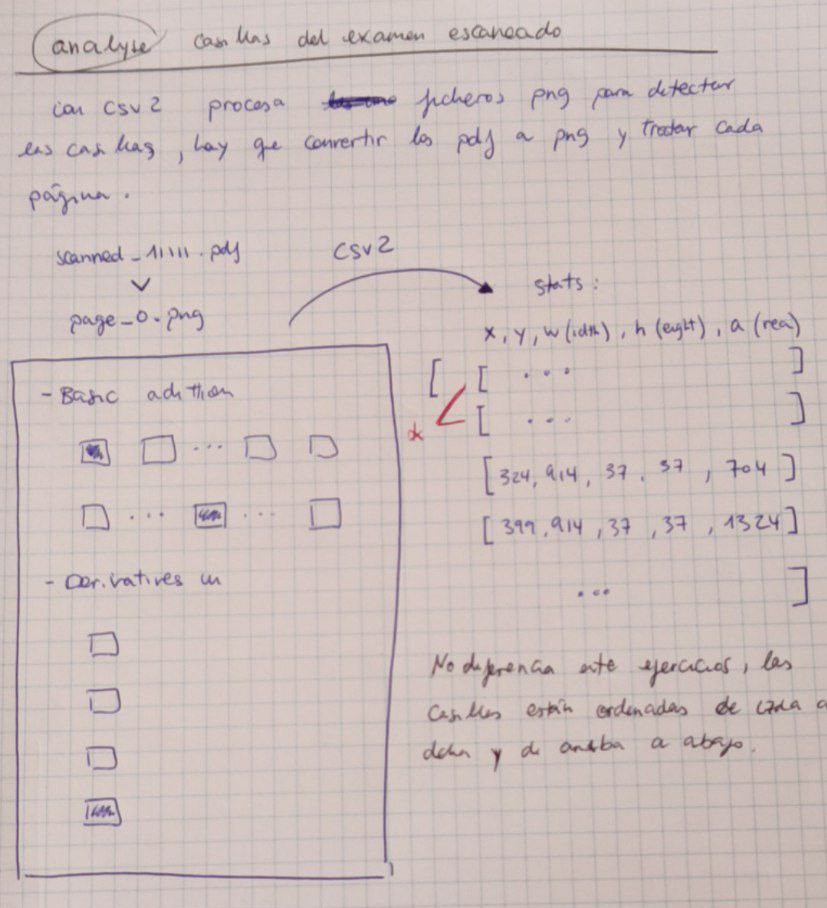 analyse casillas del examen escaneado
con csv2 procesa ficheros png para detectar
las casillas, hay que convertir los pdf a png y tratar cada
página.
scanned_11111.pdf
page_0.png
csv2
stats:
x, y, w(idth), h(eight), a(rea)
[ [ ... ]
* [ ... ]
[324, 914, 37, 37, 704]
[399, 914, 37, 37, 1324]
... ]
- Basic adition
...
... ...
- Derivatives
No diferencia ente ejercicios, las
casillas están ordenadas de izda a
dcha y de arriba a abajo.